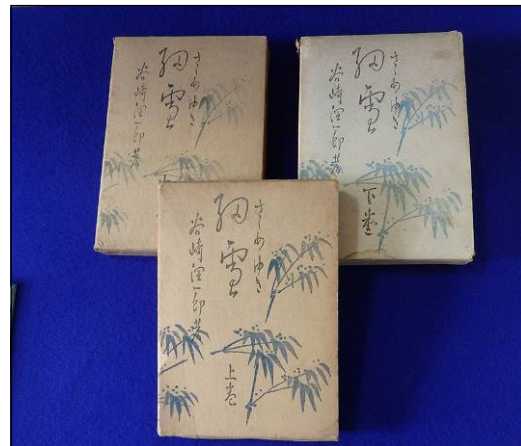 さゝめゆき
細雪
谷崎潤一郎著
さゝめゆき
細雪
谷崎潤一郎著
下巻
さゝめゆき
細雪
谷崎潤一郎著
上巻